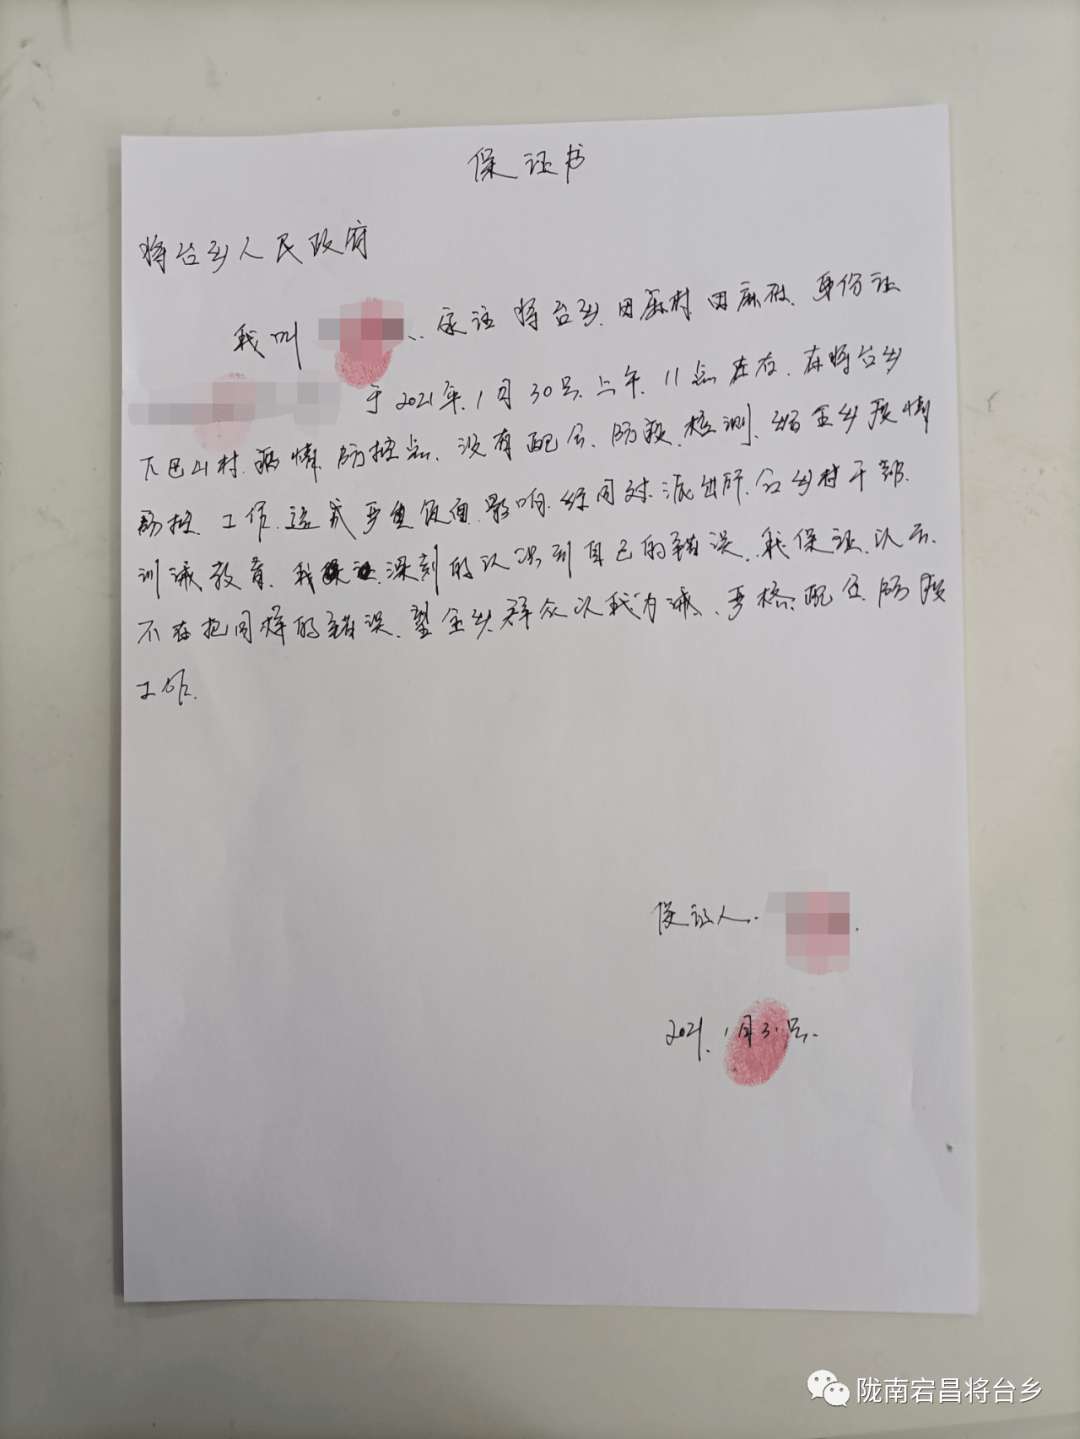 保证书
将台乡人民政府
我叫 家住 将台乡 因麻村 因麻社、身份证
于2021年1月30号上午 11点左右、在将台乡
下巴山村 疫情 防控点、没有配合、防疫、检测、给全乡疫情
防控 工作 造成 严重负面 影响 经同对 派出所、乡村干部
训诫教育、我 深刻的认识到自己的错误、我保证、以后
不在犯同样的错误、望全乡群众以我为诫、严格配合防疫
工作.
保证人.
2021. 1月3 号.
陇南宕昌将台乡